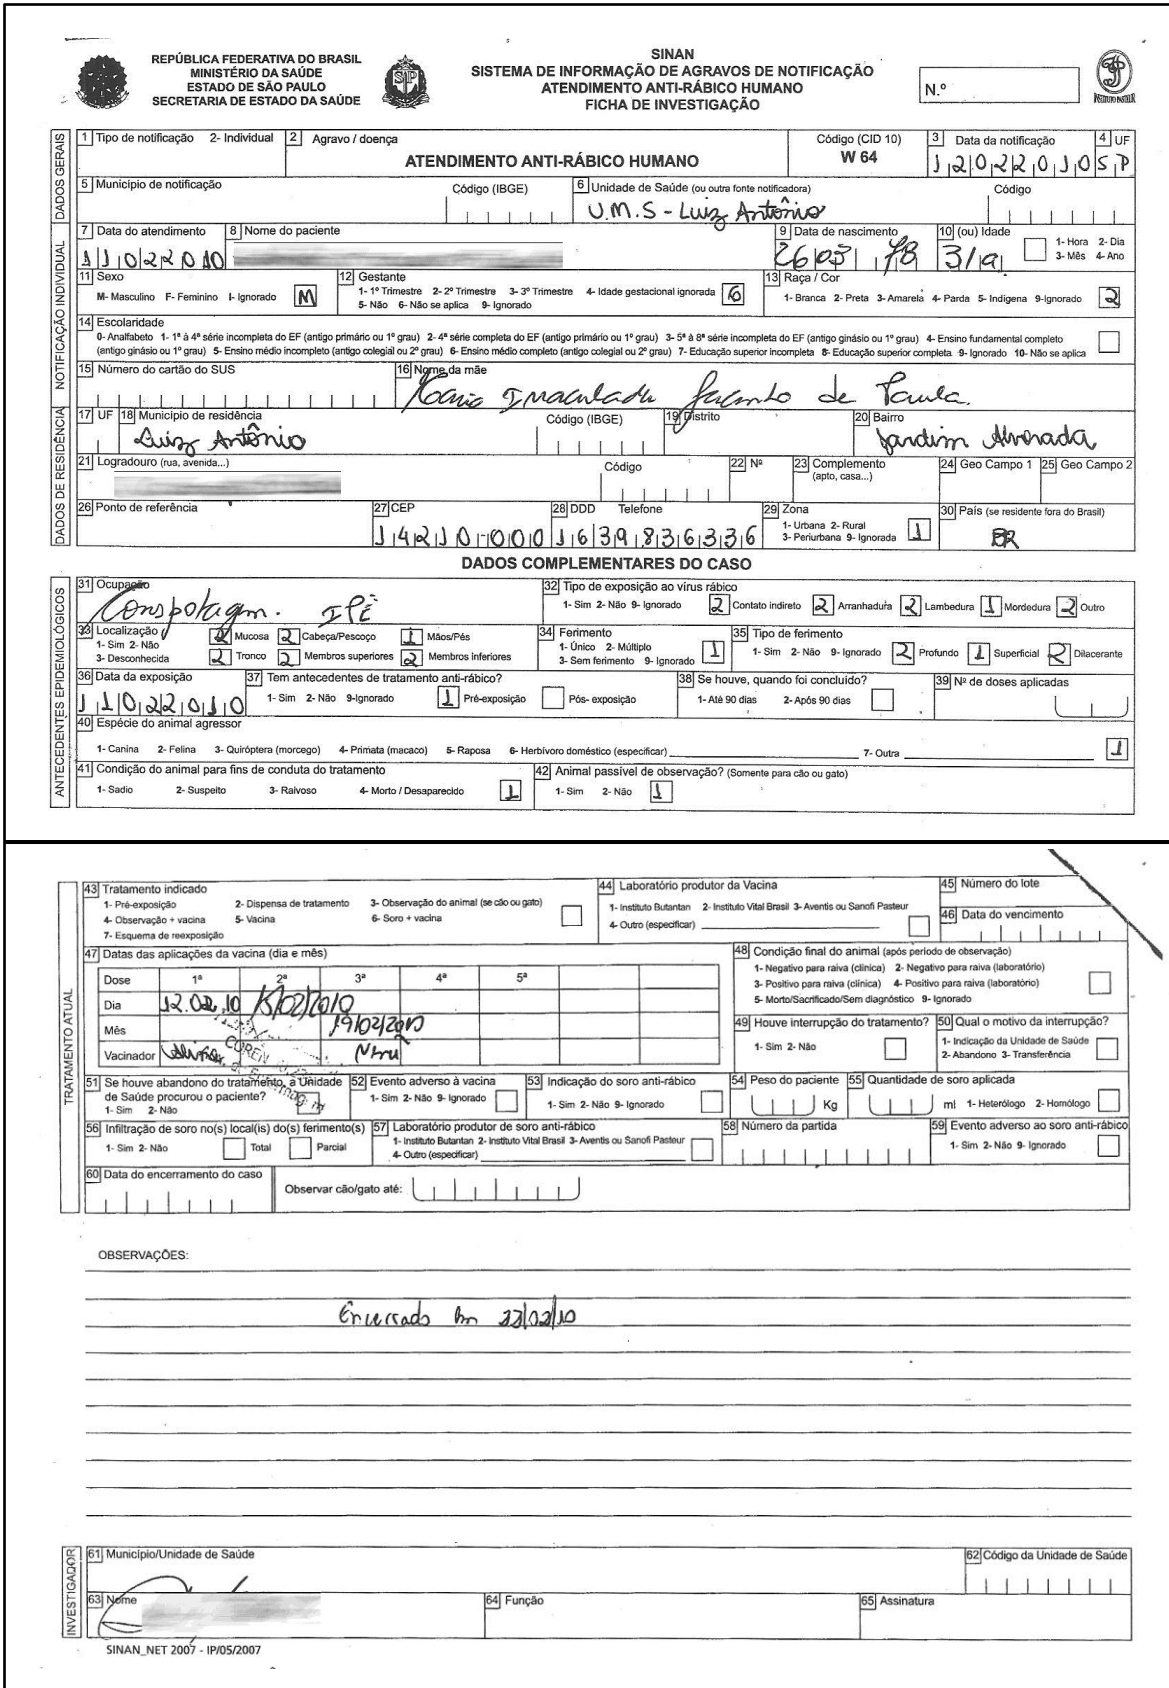 REPÚBLICA FEDERATIVA DO BRASIL
MINISTÉRIO DA SAÚDE
ESTADO DE SÃO PAULO
SECRETARIA DE ESTADO DA SAÚDE
SINAN
SISTEMA DE INFORMAÇÃO DE AGRAVOS DE NOTIFICAÇÃO
ATENDIMENTO ANTI-RÁBICO HUMANO
FICHA DE INVESTIGAÇÃO
N.º
INSTITUTO PASTEUR
DADOS GERAIS
1 Tipo de notificação 2- Individual
2 Agravo / doença
ATENDIMENTO ANTI-RÁBICO HUMANO
Código (CID 10)
W 64
3 Data da notificação
12022010
4 UF
SP
5 Município de notificação
Código (IBGE)
6 Unidade de Saúde (ou outra fonte notificadora)
U.M.S - Luiz Antônio
Código
NOTIFICAÇÃO INDIVIDUAL
7 Data do atendimento
11022010
8 Nome do paciente
9 Data de nascimento
26 03 78
10 (ou) Idade
31a
1- Hora 2- Dia
3- Mês 4- Ano
11 Sexo
M- Masculino F- Feminino I- Ignorado M
12 Gestante
1- 1º Trimestre 2- 2º Trimestre 3- 3º Trimestre 4- Idade gestacional ignorada 6
5- Não 6- Não se aplica 9- Ignorado
13 Raça / Cor
1- Branca 2- Preta 3- Amarela 4- Parda 5- Indígena 9-Ignorado 2
14 Escolaridade
0- Analfabeto 1- 1ª à 4ª série incompleta do EF (antigo primário ou 1º grau) 2- 4ª série completa do EF (antigo primário ou 1º grau) 3- 5ª à 8ª série incompleta do EF (antigo ginásio ou 1º grau) 4- Ensino fundamental completo
(antigo ginásio ou 1º grau) 5- Ensino médio incompleto (antigo colegial ou 2º grau) 6- Ensino médio completo (antigo colegial ou 2º grau) 7- Educação superior incompleta 8- Educação superior completa 9- Ignorado 10- Não se aplica
15 Número do cartão do SUS
16 Nome da mãe
Imaculada Jacinto de Paula.
DADOS DE RESIDÊNCIA
17 UF
18 Município de residência
Luiz Antônio
Código (IBGE)
19 Distrito
20 Bairro
Jardim Alvorada
21 Logradouro (rua, avenida...)
Código
22 Nº
23 Complemento
(apto, casa...)
24 Geo Campo 1
25 Geo Campo 2
26 Ponto de referência
27 CEP
14210-000
28 DDD Telefone
1639836336
29 Zona
1- Urbana 2- Rural
3- Periurbana 9- Ignorada 1
30 País (se residente fora do Brasil)
BR
DADOS COMPLEMENTARES DO CASO
ANTECEDENTES EPIDEMIOLÓGICOS
31 Ocupação
IPÊ
32 Tipo de exposição ao vírus rábico
1- Sim 2- Não 9- Ignorado 2 Contato indireto 2 Arranhadura 2 Lambedura 1 Mordedura 2 Outro
33 Localização
1- Sim 2- Não
3- Desconhecida
2 Mucosa 2 Cabeça/Pescoço 1 Mãos/Pés
2 Tronco 2 Membros superiores 2 Membros inferiores
34 Ferimento
1- Único 2- Múltiplo
3- Sem ferimento 9- Ignorado 1
35 Tipo de ferimento
1- Sim 2- Não 9- Ignorado 2 Profundo 1 Superficial 2 Dilacerante
36 Data da exposição
11022010
37 Tem antecedentes de tratamento anti-rábico?
1- Sim 2- Não 9-Ignorado 1 Pré-exposição Pós- exposição
38 Se houve, quando foi concluído?
1- Até 90 dias 2- Após 90 dias
39 Nº de doses aplicadas
40 Espécie do animal agressor
1- Canina 2- Felina 3- Quiróptera (morcego) 4- Primata (macaco) 5- Raposa 6- Herbívoro doméstico (especificar) 7- Outra 1
41 Condição do animal para fins de conduta do tratamento
1- Sadio 2- Suspeito 3- Raivoso 4- Morto / Desaparecido 1
42 Animal passível de observação? (Somente para cão ou gato)
1- Sim 2- Não 1
TRATAMENTO ATUAL
43 Tratamento indicado
1- Pré-exposição 2- Dispensa de tratamento 3- Observação do animal (se cão ou gato)
4- Observação + vacina 5- Vacina 6- Soro + vacina
7- Esquema de reexposição
44 Laboratório produtor da Vacina
1- Instituto Butantan 2- Instituto Vital Brasil 3- Aventis ou Sanofi Pasteur
4- Outro (especificar)
45 Número do lote
46 Data do vencimento
47 Datas das aplicações da vacina (dia e mês)
Dose 1ª 2ª 3ª 4ª 5ª
Dia 12.02.10 15/02/2010
Mês 19/02/2010
Vacinador
COREN
48 Condição final do animal (após período de observação)
1- Negativo para raiva (clínica) 2- Negativo para raiva (laboratório)
3- Positivo para raiva (clínica) 4- Positivo para raiva (laboratório)
5- Morto/Sacrificado/Sem diagnóstico 9- Ignorado
49 Houve interrupção do tratamento?
1- Sim 2- Não
50 Qual o motivo da interrupção?
1- Indicação da Unidade de Saúde
2- Abandono 3- Transferência
51 Se houve abandono do tratamento, a Unidade
de Saúde procurou o paciente?
1- Sim 2- Não
52 Evento adverso à vacina
1- Sim 2- Não 9- Ignorado
53 Indicação do soro anti-rábico
1- Sim 2- Não 9- Ignorado
54 Peso do paciente
Kg
55 Quantidade de soro aplicada
ml 1- Heterólogo 2- Homólogo
56 Infiltração de soro no(s) local(is) do(s) ferimento(s)
1- Sim 2- Não Total Parcial
57 Laboratório produtor de soro anti-rábico
1- Instituto Butantan 2- Instituto Vital Brasil 3- Aventis ou Sanofi Pasteur
4- Outro (especificar)
58 Número da partida
59 Evento adverso ao soro anti-rábico
1- Sim 2- Não 9- Ignorado
60 Data do encerramento do caso
Observar cão/gato até:
OBSERVAÇÕES:
Encerrado em 22/02/10
INVESTIGADOR
61 Município/Unidade de Saúde
62 Código da Unidade de Saúde
63 Nome
64 Função
65 Assinatura
SINAN_NET 2007 - IP/05/2007